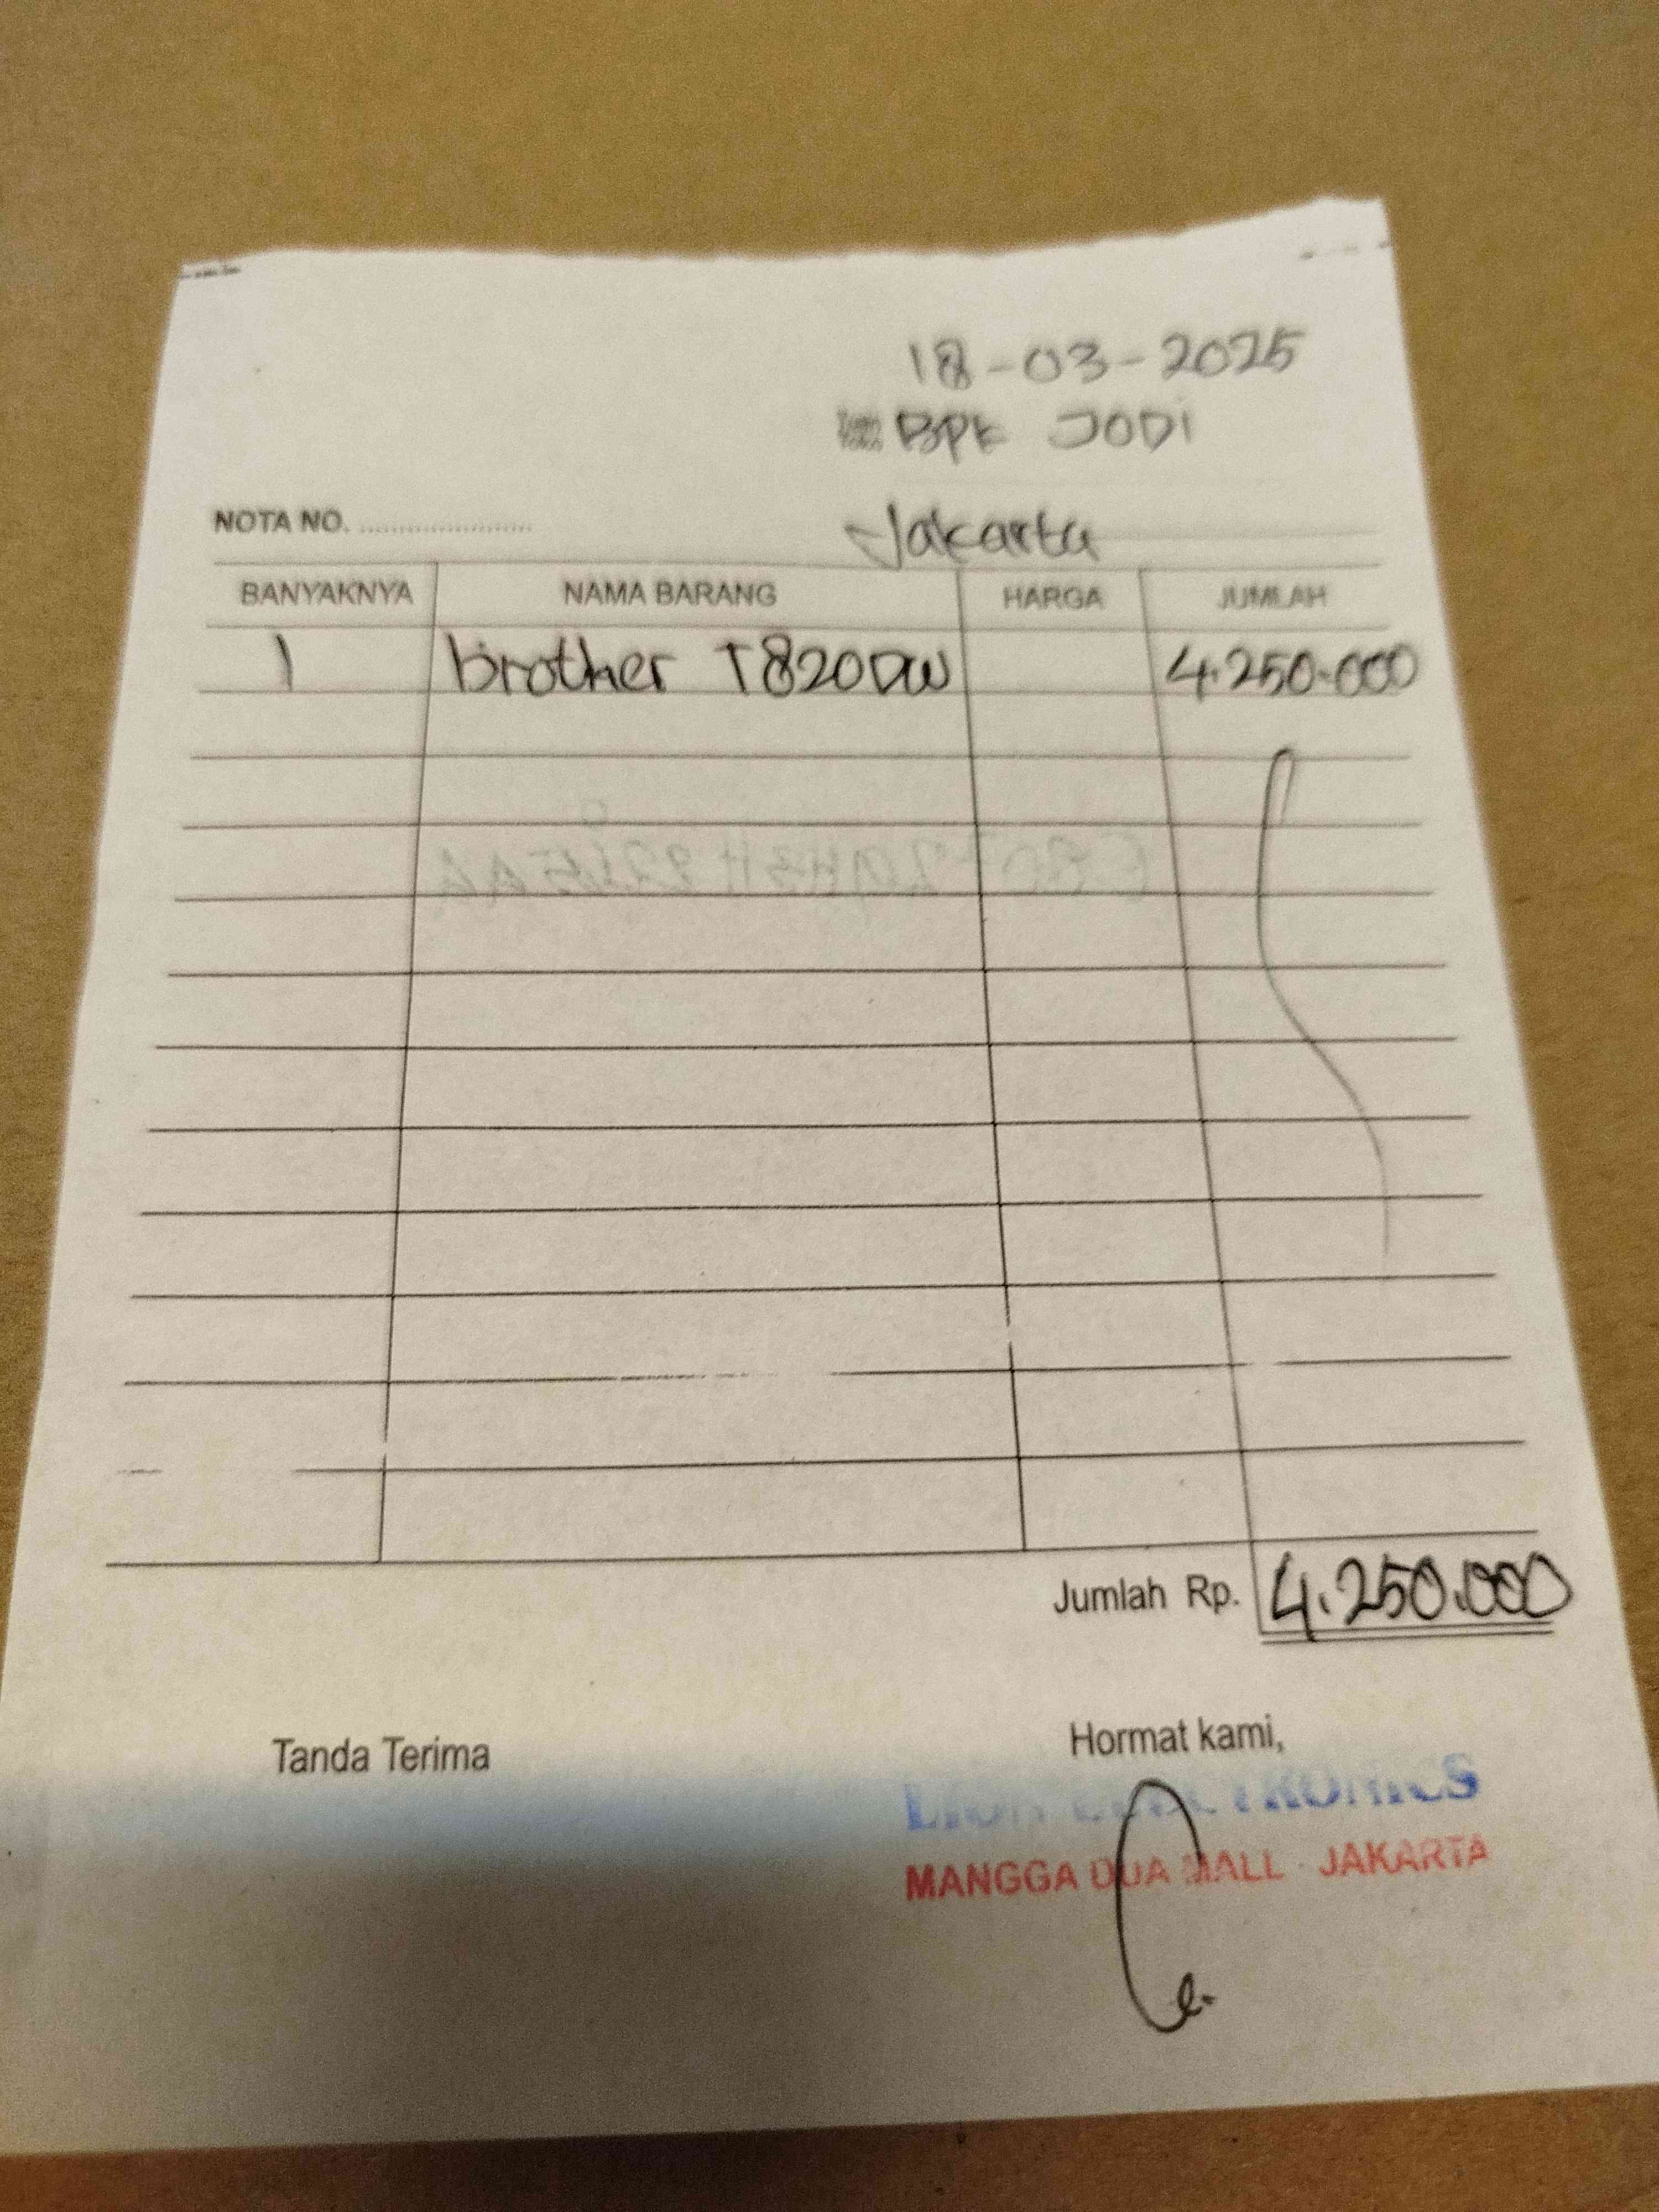 18-03-2025
Tuan
Toko
BPK JODI
NOTA NO. ........................
Jakarta
BANYAKNYA NAMA BARANG HARGA JUMLAH
1 brother T820DW 4.250.000
Jumlah Rp. 4.250.000
Tanda Terima Hormat kami,
LION ELECTRONICS
MANGGA DUA MALL - JAKARTA